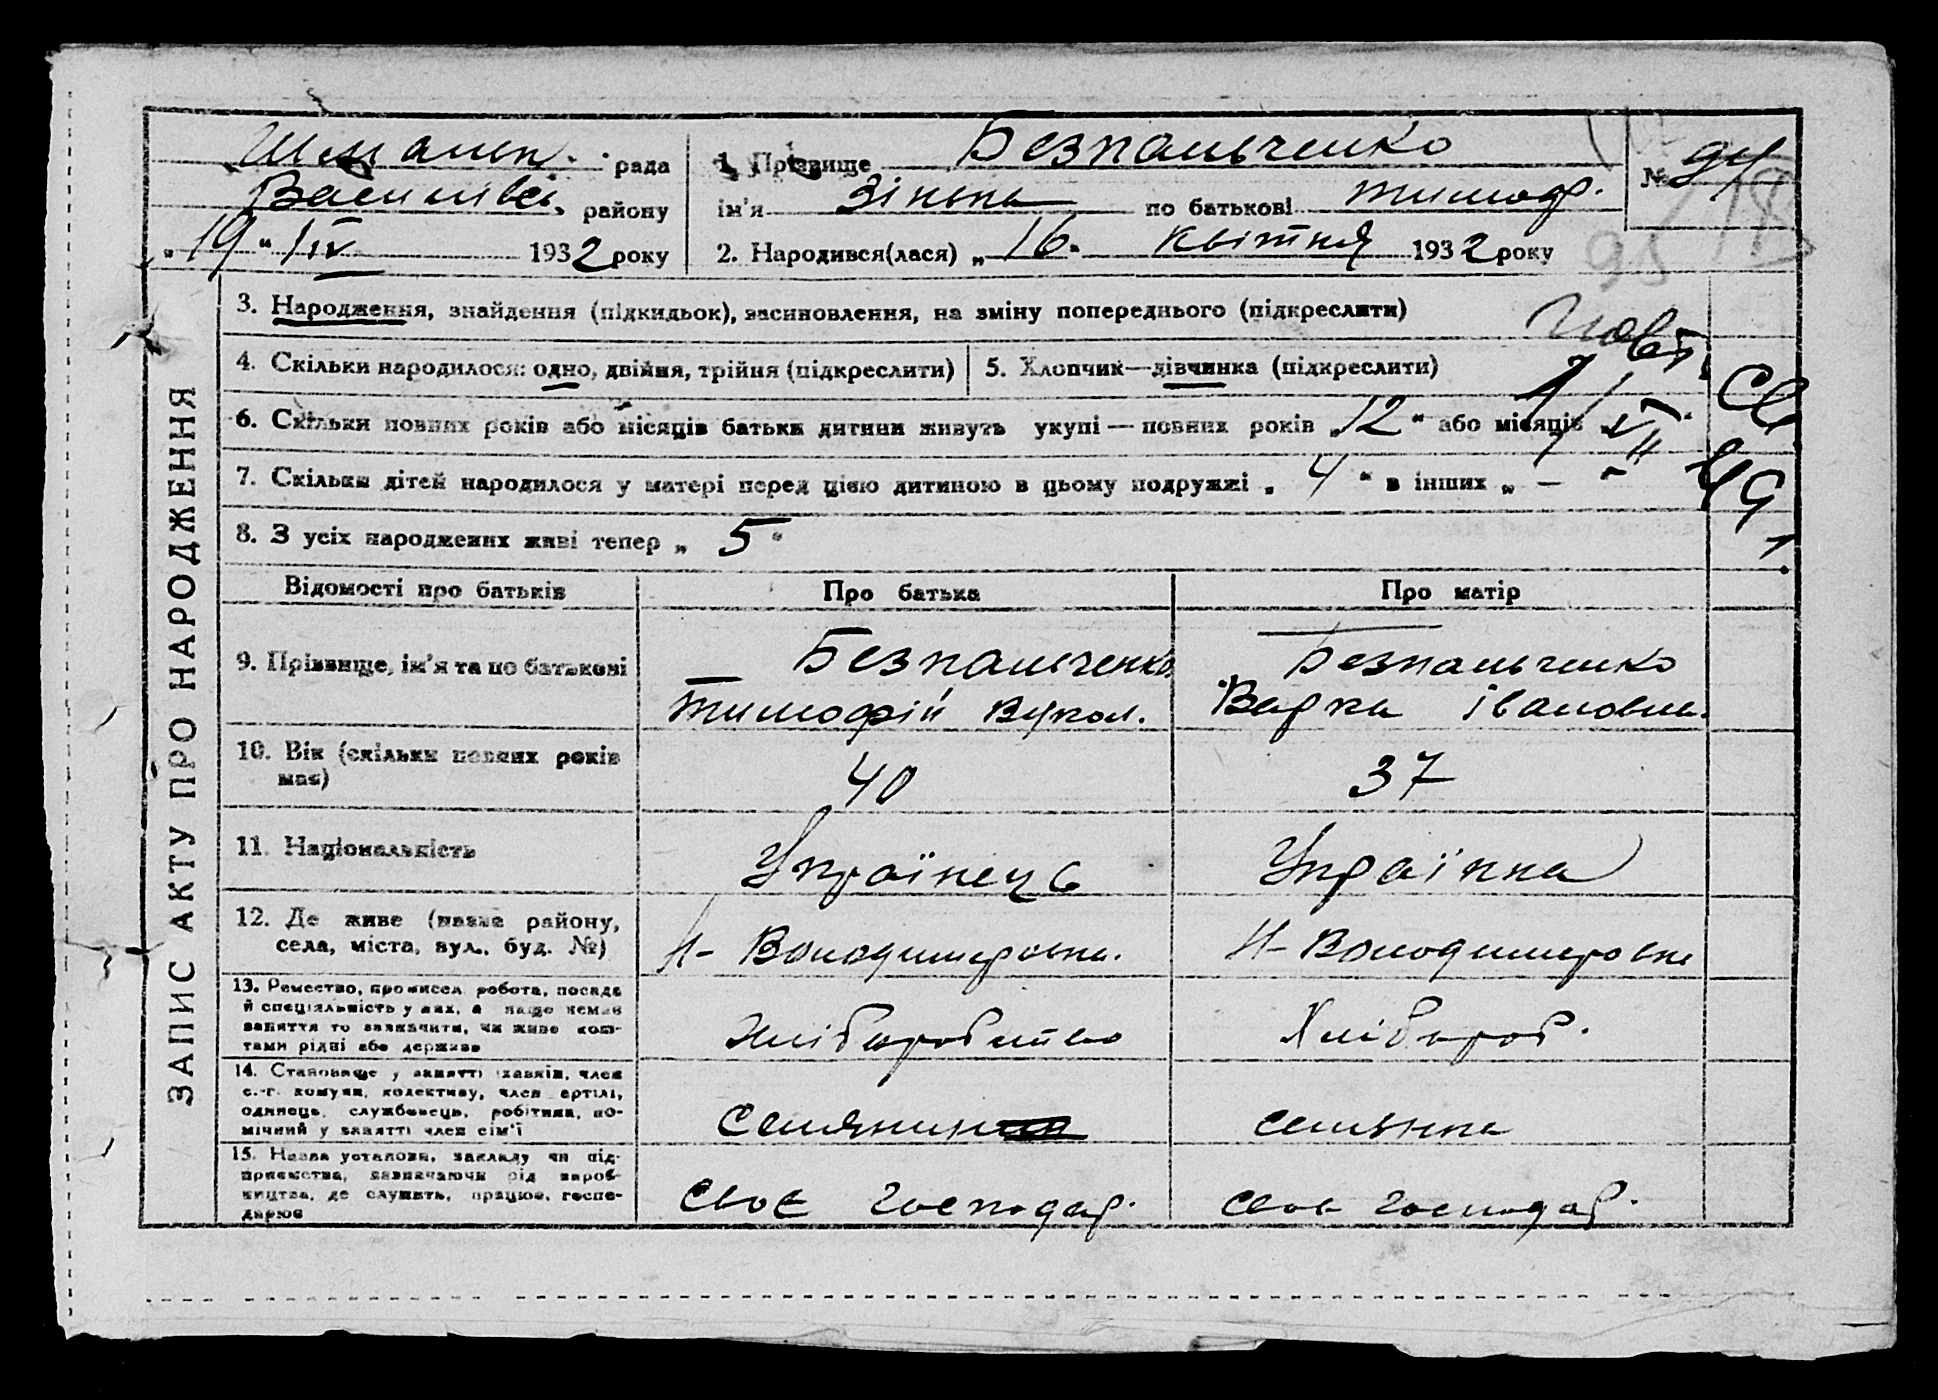 рада
Василівсь. району
„19“ IV 1932 року
1. Прізвище Безпальченко
ім'я Зінька по батькові Тимоф.
2. Народився(лася) „16“ Квітня 1932 року
№ 94
95
118
ЗАПИС АКТУ ПРО НАРОДЖЕННЯ
3. Народження, знайдення (підкидьок), засиновлення, на зміну попереднього (підкреслити)
4. Скільки народилося: одно, двійня, трійня (підкреслити)
5. Хлопчик—дівчинка (підкреслити)
6. Скільки повних років або місяців батьки дитини живуть укупі — повних років „12“ або місяців
7. Скільки дітей народилося у матері перед цією дитиною в цьому подружжі „4“ в інших „ —
8. З усіх народжених живі тепер „5“
Відомості про батьків
Про батька
Про матір
9. Прізвище, ім'я та по батькові
Безпальченко
Тимофій Вукол.
Безпальченко
Варка Івановна.
10. Вік (скільки повних років
має)
40
37
11. Національність
Українець
Українка
12. Де живе (назва району,
села, міста, вул., буд. №)
Н- Володимеровка.
Н- Володимеровка
13. Ремество, промисел робота, посада
й спеціяльність у них, а якщо немає
заняття то зазначити, чи живе кош-
тами рідні або держави
Хліборобство
Хлібороб.
14. Становище у занятті хазяїн, член
с.-г. комуни, колективу, член артілі,
одинець, службовець, робітник, по-
мічний у занятті член сім'ї
Селянин
селянка
15. Назва установи, закладу чи під-
приємства, зазначаючи рід вироб-
ництва, де служить, працює, госпо-
дарює
своє господар.
своє господар.